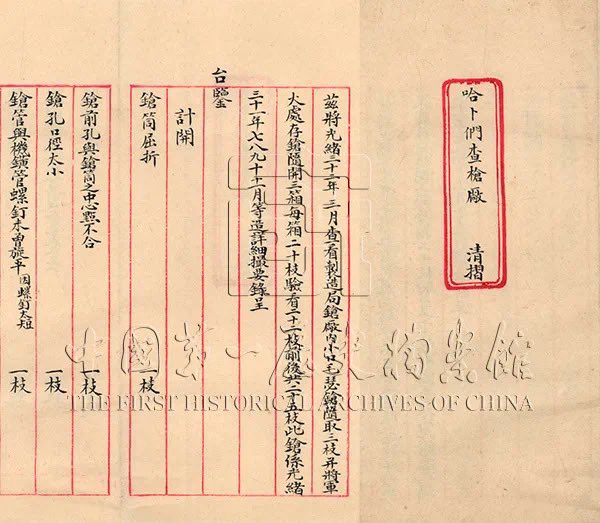 哈卜們查槍廠 清摺
茲將光緒三十二年三月查看製造局鎗廠內小口毛瑟鎗隨取三枝并將軍
火處存鎗隨開三箱每箱二十枝驗看二十二枝前後共二十五枝此鎗係光緒
三十一年七八九十十一月等造詳細撮要錄呈
台鑒
計開
鎗筒屈折 一枝
鎗前孔與鎗筒之中心點不合 一枝
鎗孔口徑太小 一枝
鎗管與機鐄管螺釘未曾旋平因螺釘太短 一枝
中國第一歷史檔案館
THE FIRST HISTORICAL ARCHIVES OF CHINA